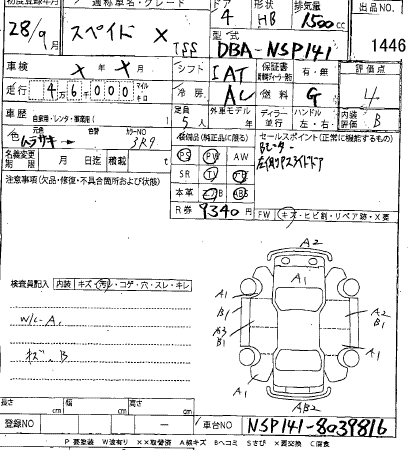 初度登録年月 通称車名・グレード ドア 形状 排気量 出品NO.
28/9月 スペイド X 4 HB 1500cc
型式 DBA-NSP141 1446
車検 X年X月 シフト IAT 保証書 有・無 評価点
走行 46,000 マイル キロ 冷房 AC 燃料 G 4
車歴 自家用・レンタ・事業用( ) 定員 5人 外車モデル 年 ディーラー 並行 ハンドル 左・右 内装評価 B
色 元色 ムラサキ 色替 カラーNO 3R9 装備品(純正品に限る) セールスポイント(正常に機能するもの)
名義変更期限 月 日迄 積載 t PS PW AW
注意事項(欠品・修復・不具合箇所および状態) SR TV
本革 エアB ABS
R券 9340円 FW キズ・ヒビ割・リペア跡・X要
検査員記入 内装 キズ・汚レ・コゲ・穴・スレ・キレ
A2
A1
A1
B1
A2
B1
A3
B1
A1
A1
W/C-A1
キズ、B
AB2
長さ cm 幅 cm 高さ cm
登録NO 車台NO NSP141-8039816
P 要塗装 W 波有り XX 取替済 A 線キズ B ヘコミ S さび X 要交換 C 腐食